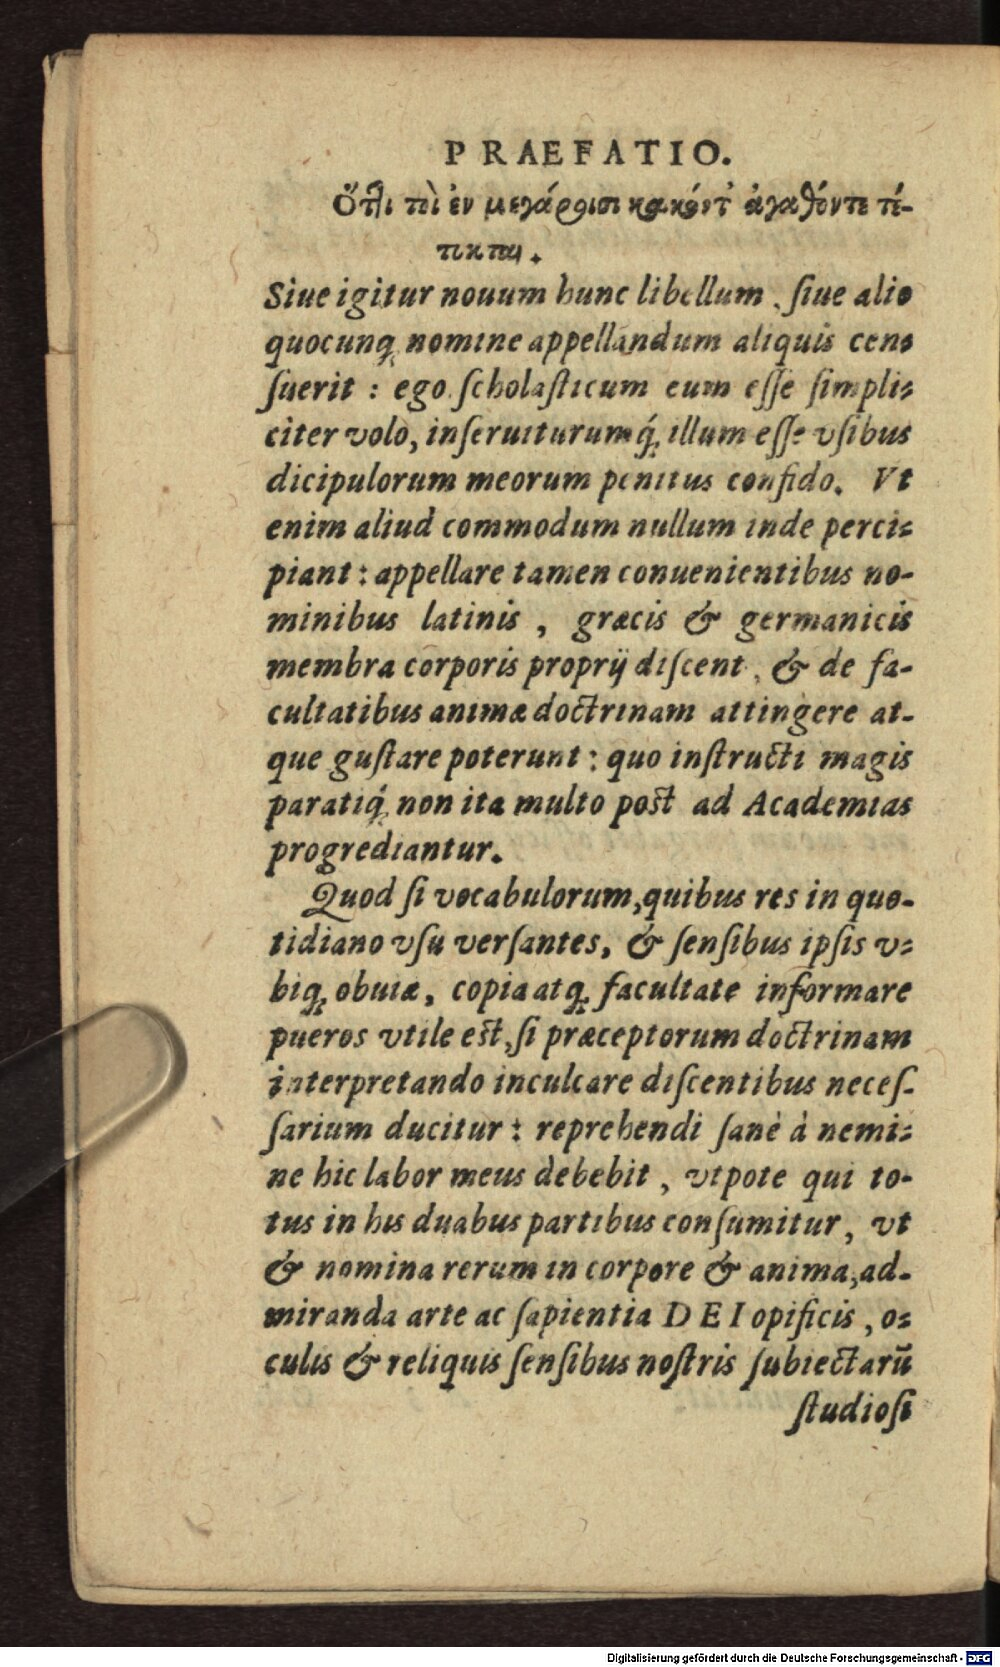 PRAEFATIO.
Ὅτλι τοὶ ἐν μεγάροισι κακόντ᾽ ἀγαθόντε τέ-
τυκται.
Siue igitur nouum hunc libellum, ſiue alio
quocunq; nomine appellandum aliquis cen⸗
ſuerit : ego ſcholaſticum eum eſſe ſimpli⸗
citer volo, inſeruiturumq́; illum eſſe vſibus
dicipulorum meorum penitus confido. Vt
enim aliud commodum nullum inde perci⸗
piant : appellare tamen conuenientibus no-
minibus latinis, græcis & germanicis
membra corporis proprij diſcent, & de fa-
cultatibus animæ doctrinam attingere at-
que guſtare poterunt : quo inſtructi magis
paratiq́; non ita multo poſt ad Academias
progrediantur.
Quod ſi vocabulorum, quibus res in quo-
tidiano vſu verſantes, & ſenſibus ipſis v⸗
biq; obuiæ, copia atq; facultate informare
pueros vtile eſt, ſi præceptorum doctrinam
interpretando inculcare diſcentibus neceſ-
ſarium ducitur : reprehendi ſanè à nemi⸗
ne hic labor meus debebit, vtpote qui to-
tus in his duabus partibus conſumitur, vt
& nomina rerum in corpore & anima, ad-
miranda arte ac ſapientia DEI opificis, o⸗
culis & reliquis ſenſibus noſtris ſubiectarū
ſtudioſi
Digitalisierung gefördert durch die Deutsche Forschungsgemeinschaft - DFG